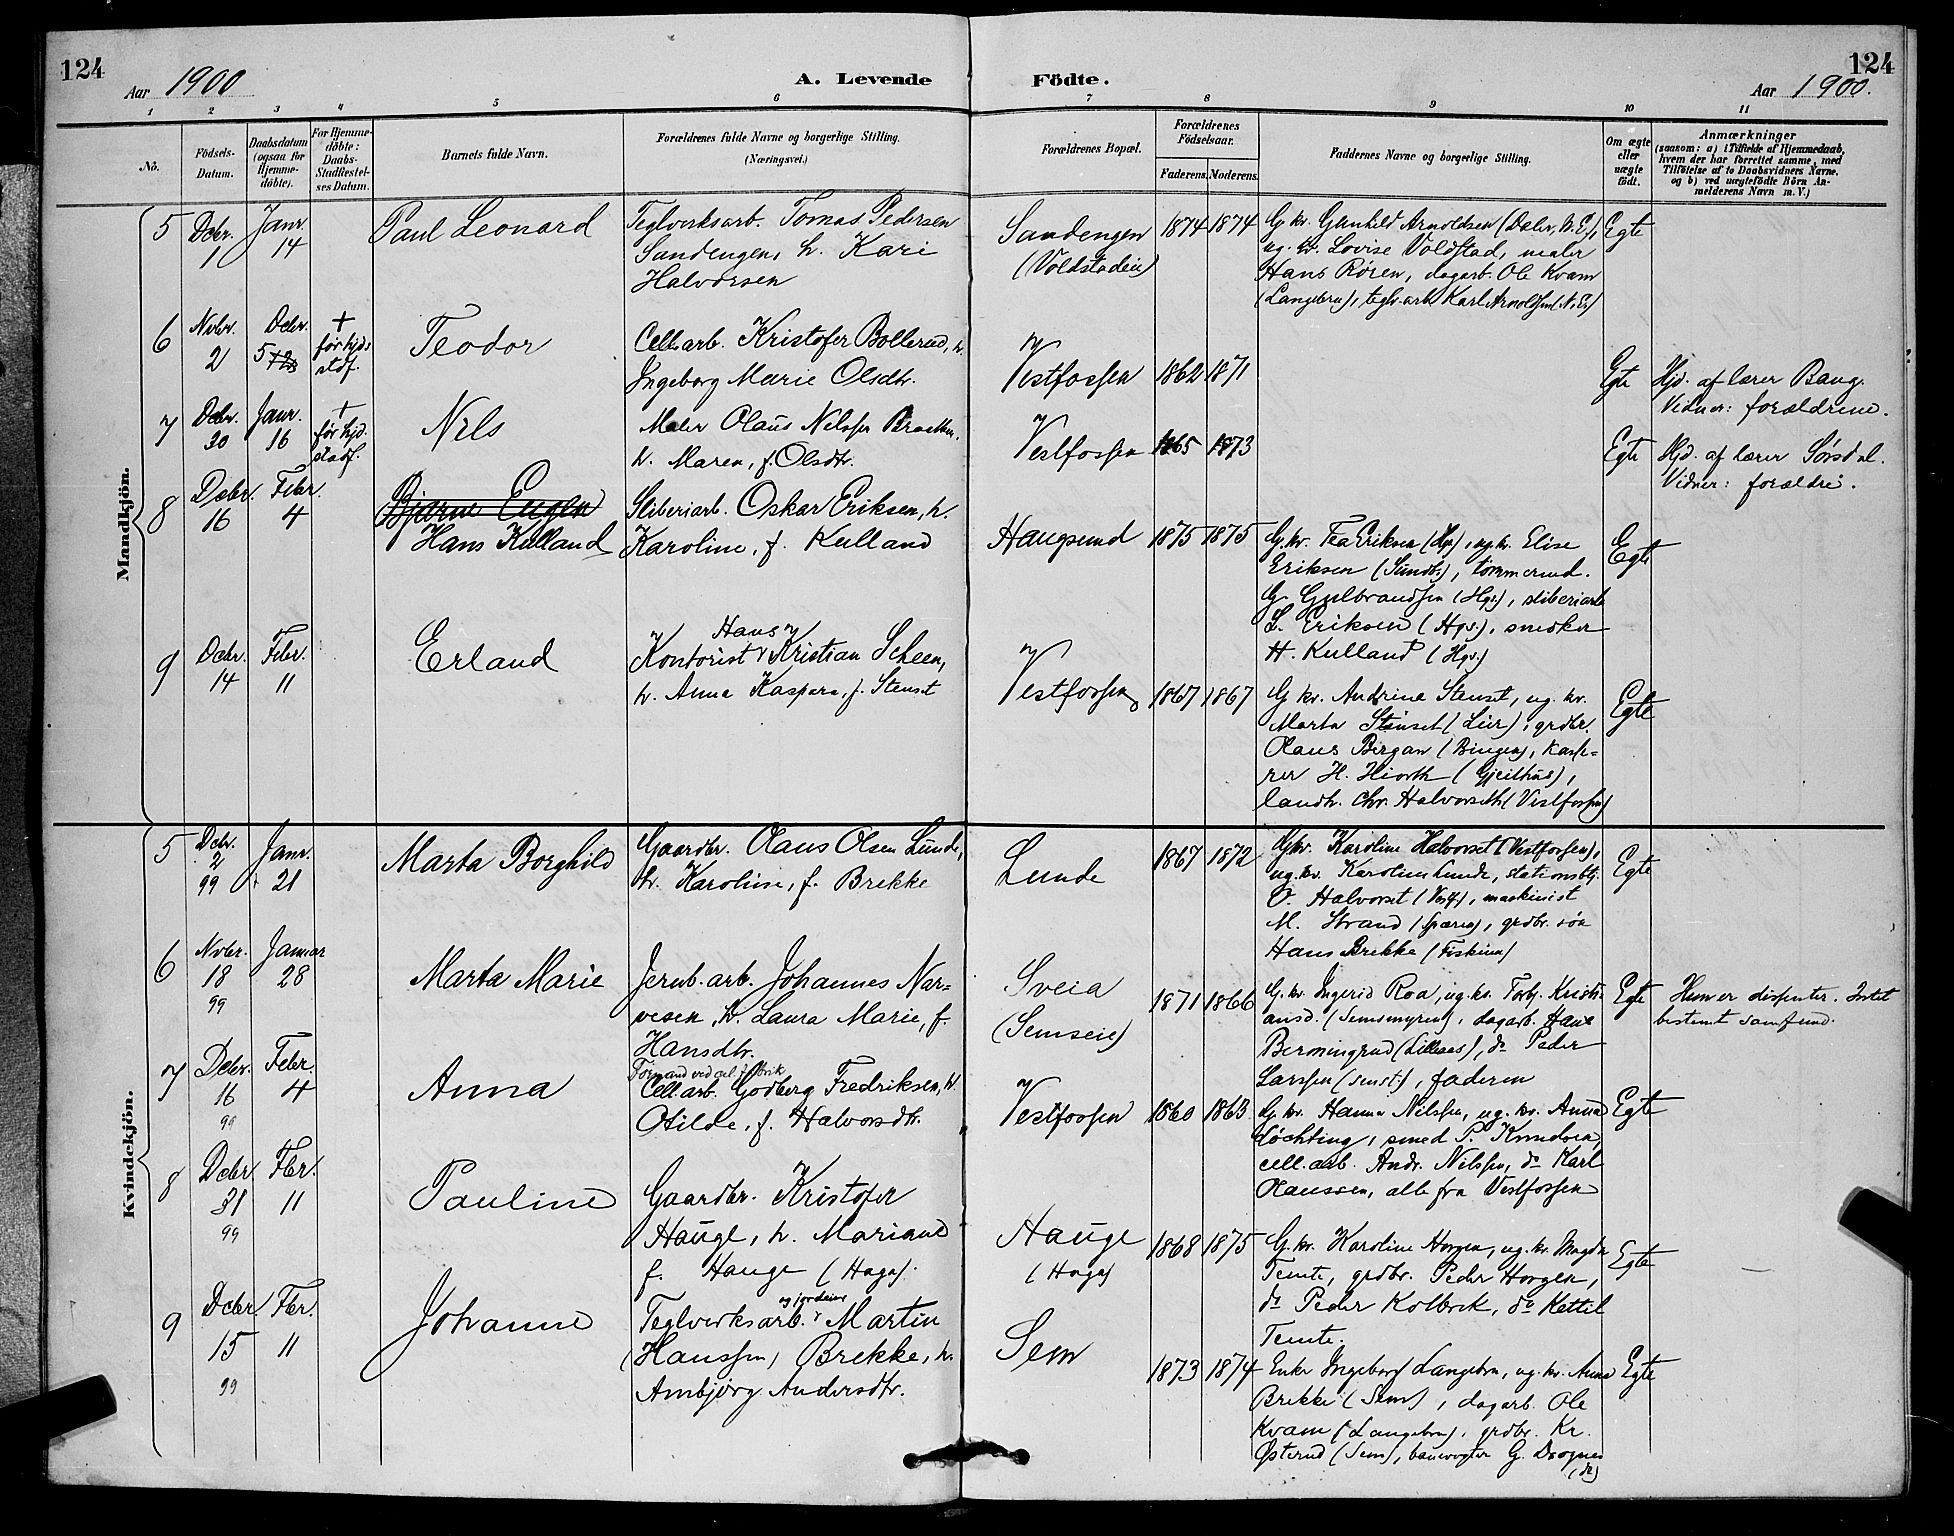 124
Aar 1900
A. Levende
Födte.
124
Aar 1900.
1 2 3 4 5 6 7 8 9 10 11
No.
Födsels-
Datum.
Daabsdatum
(ogsaa for
Hjemme-
döbte).
For Hjemme-
döbte:
Daabs-
Stadfestel-
ses Datum.
Barnets fulde Navn.
Forældrenes fulde Navne og borgerlige Stilling.
(Næringsvei.)
Forældrenes Bopæl.
Forældrenes
Födselsaar.
Faderens. Moderens.
Faddernes Navne og borgerlige Stilling.
Om ægte
eller
uægte
födt.
Anmærkninger
(saasom: a) i Tilfælde af Hjemmedaab,
hvem der har forrettet samme, med
Tilföielse af to Daabsvidners Navne.
og b) ved uægtefödte Börn An-
melderens Navn m. V.)
Mandkjön.
5
Dcbr.
1
Janr.
14
Paul Leonard
Teglverksarb. Tomas Pedersen
Sandengen, h. Kari
Halvorsen
Sandengen
(Voldstadeie)
1874 1874
G. kv. Gunhild Arnoldsen (Døler, N.E.),
ug. kv. Lovise Voldstad, maler
Hans Røren, dagarb. Ole Kvam
(Langebru), teglv.arb. Karl Arnoldsen (N.E.)
Egte
6
Nvbr.
2
Dcbr.
5
+
før hjds
stdf.
Teodor
Cell.arb. Kristofer Bollerud, h.
Ingeborg Marie Olsdtr.
Vestfossen
1862 1871
Egte
Hjd. af lærer Bang.
Vidner: forældrene.
7
Dcbr.
30
Janr.
16
+
før hjd.
stadf.
Nils
Maler Olaus Nilssen Braathen,
h. Maren, f. Olsdtr.
Vestfossen
1865 1873
Egte
Hjd. af lærer Sørsdal.
Vidner: forældre.
8
Dcbr.
16
Febr.
4
Bjarne Eugen
Hans Kulland
Sliberiarb. Oskar Eriksen, h.
Karoline, f. Kulland
Haugsund
1875 1875
G. kv. Tea Eriksen (Hgs), ug. kv. Elise
Eriksen (Sundb.), tømmermd.
G. Gulbrandsen (Hgs.), sliberiarb
L. Eriksen (Hgs.), snedker
H. Kulland (Hgs.)
Egte
9
Dcbr.
14
Febr.
11
Erland
Hans
Kontorist Kristian Scheen,
h. Anna Kaspara, f. Stenset
Vestfossen
1867 1867
G. kv. Andrine Stenset, ug. kv.
Marta Stenset (Lier), grdbr.
Olaus Birgan (Bingen), kasse-
rer H. Hiorth (Gjeithus),
landh. Chr. Halvorseth (Vestfossen)
Egte
Kvindekjön.
5
Dcbr.
2
99
Janr.
21
Marta Borghild
Gaardbr. Olaus Olsen Lunde,
h. Karoline, f. Brekke
Lunde
1867 1872
G. kv. Karoline Halvorset (Vestfossen),
ug. kv. Karoline Lunde, stationsbtj.
O. Halvorset (Vestf.), maskinist
M. Strand (Spæren), grdbr. søn
Hans Brekke (Fiskum)
Egte
6
Nvbr.
18
99
Januar
28
Marta Marie
Jernb. arb. Johannes Nar-
vesen, h. Laura Marie, f.
Hansdtr.
Sveia
(Semseie)
1871 1866
G. kv. Ingerid Roa, ug. kv. Torbj. Kristi-
ansd. (Semsmyren), dagarb. Hans
Bermingrud (Lilleaas), do Peder
Larssen (Semst.), faderen
Egte
Hun er dissenter. Intet
bestemt samfund.
7
Dcbr.
16
99
Febr.
4
Anna
Formand ved cel. fabrik
Cell.arb. Godberg Fredriksen, h.
Otilde, f. Halvorsdtr.
Vestfossen
1860 1863
G. kv. Hanna Nilssen, ug. kv. Anna
Løchting, smed P. Knudsen,
cell. arb. Andr. Nilssen, do Karl
Olaussen, alle fra Vestfossen
Egte
8
Dcbr.
31
99
Fbr.
11
Pauline
Gaardbr. Kristofer
Hauge, h. Mariane
f. Hauge (Haga).
Hauge
(Haga)
1868 1875
G. kv. Karoline Horgen, ug. kv. Magda
Temte, grdbr. Peder Horgen,
do Peder Kolbrek, do Kettil
Temte.
Egte
9
Dcbr
15
99
Fbr.
11
Johanne
og jordeier
Teglverksarb. Martin
(Hanssen) Brekke, h.
Ambjørg Andersdtr.
Sem
1873 1874
Enke Ingeborg Langebru, ug. kv. Anna
Brekke (Sem), dagarb. Ole
Kvam (Langebru), grdbr. Kr.
Østerud (Sem), banevogter G. Dragnes
(do)
Egte